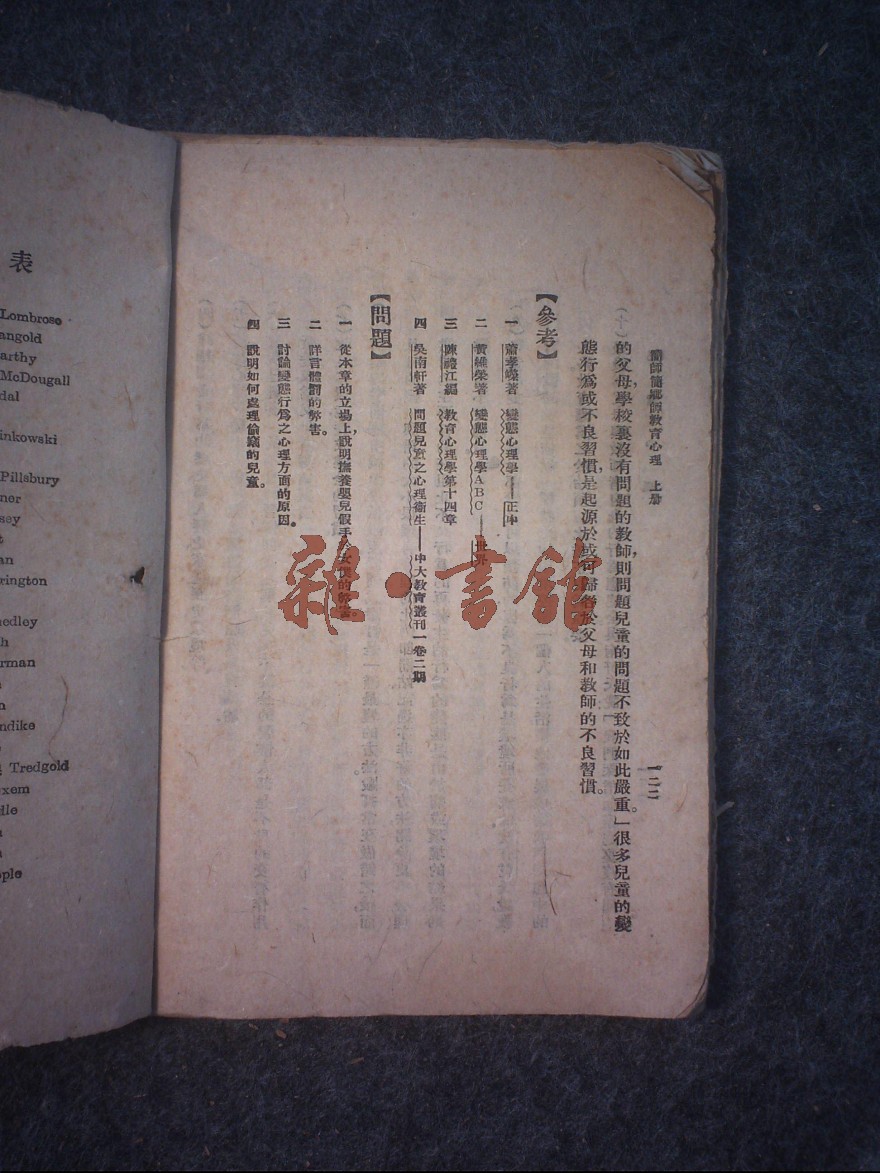 簡師簡鄉師教育心理 上册
一二二
的父母，學校裏沒有問題的教師，則問題兒童的問題不致於如此嚴重。」很多兒童的變
態行爲或不良習慣，是起源於或可歸咎於父母和教師的不良習慣。
【參考】
一 蕭孝嶸著 變態心理學——正中
二 黃維榮著 變態心理學ABC——世界
三 陳禮江編 教育心理學第十四章
四 吳南軒著 問題兒童之心理衞生——中大教育叢刊一卷二期
【問題】
一 從本章的立場上，說明撫養嬰兒假手 女僕的弊害。
二 詳言體罰的弊害。
三 討論變態行爲之心理方面的原因。
四 說明如何處理偷竊的兒童。
表
Lombroso
angold
arthy
McDougall
dal
inkowski
Pillsbury
ner
sey
t
an
rrington
medley
h
rman
n
ndike
Tredgold
xem
dle
n
ople
雜·書館